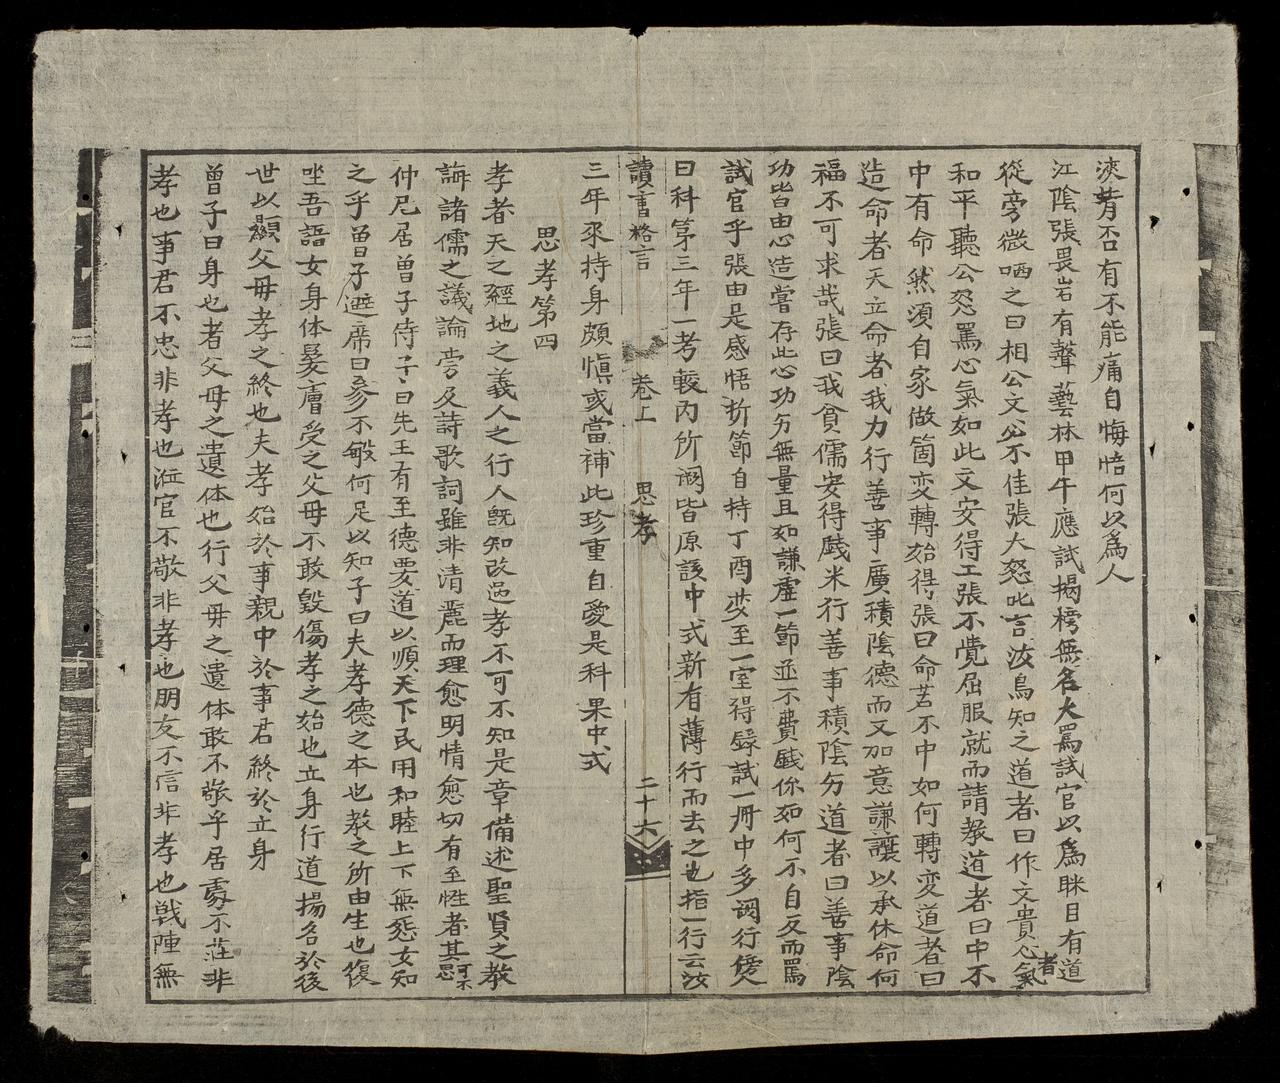 浹背否有不能痛自悔悟何以爲人
江陰張畏岩有聲藝林甲午應試揭榜無名大罵試官以爲眯目有道者
從旁微哂之曰相公文必不佳張大怒叱言汝烏知之道者曰作文貴心氣
和平聽公怒罵心氣如此文安得工張不覺屈服就而請教道者曰中不
中有命然須自家做箇変轉始得張曰命若不中如何轉変道者曰
造命者天立命者我力行善事廣積陰德而又加意謙讓以承休命何
福不可求哉張曰我貧儒安得賎米行善事積陰功道者曰善事陰
功皆由心造嘗存此心功夯無量且如謙虛一節並不費賎你如何不自反而罵
試官乎張由是感悟折節自持丁酉夢至一室得録試一冊中多闕行傍人
曰科第三年一考較内所闕皆原該中式新有薄行而去之也指一行云汝
讀書格言 卷上 思孝 二十六
三年來持身頗愼或當補此珍重自愛是科果中式
思孝第四
孝者天之經地之義人之行人既知改過孝不可不知是章備述聖賢之教
誨諸儒之議論旁及詩歌詞雖非清麗而理愈明情愈切有至性者其可不思
仲尼居曾子侍子〻曰先王有至德要道以順天下民用和睦上下無怨女知
之乎曾子避席曰參不敏何足以知子曰夫孝德之本也教之所由生也復
坐吾語女身体髮膚受之父母不敢毀傷孝之始也立身行道揚名於後
世以顯父毋孝之終也夫孝始於事親中於事君終於立身
曾子曰身也者父母之遺体也行父毋之遺体敢不敬乎居處不莊非
孝也事君不忠非孝也涖官不敬非孝也朋友不信非孝也戰陣無